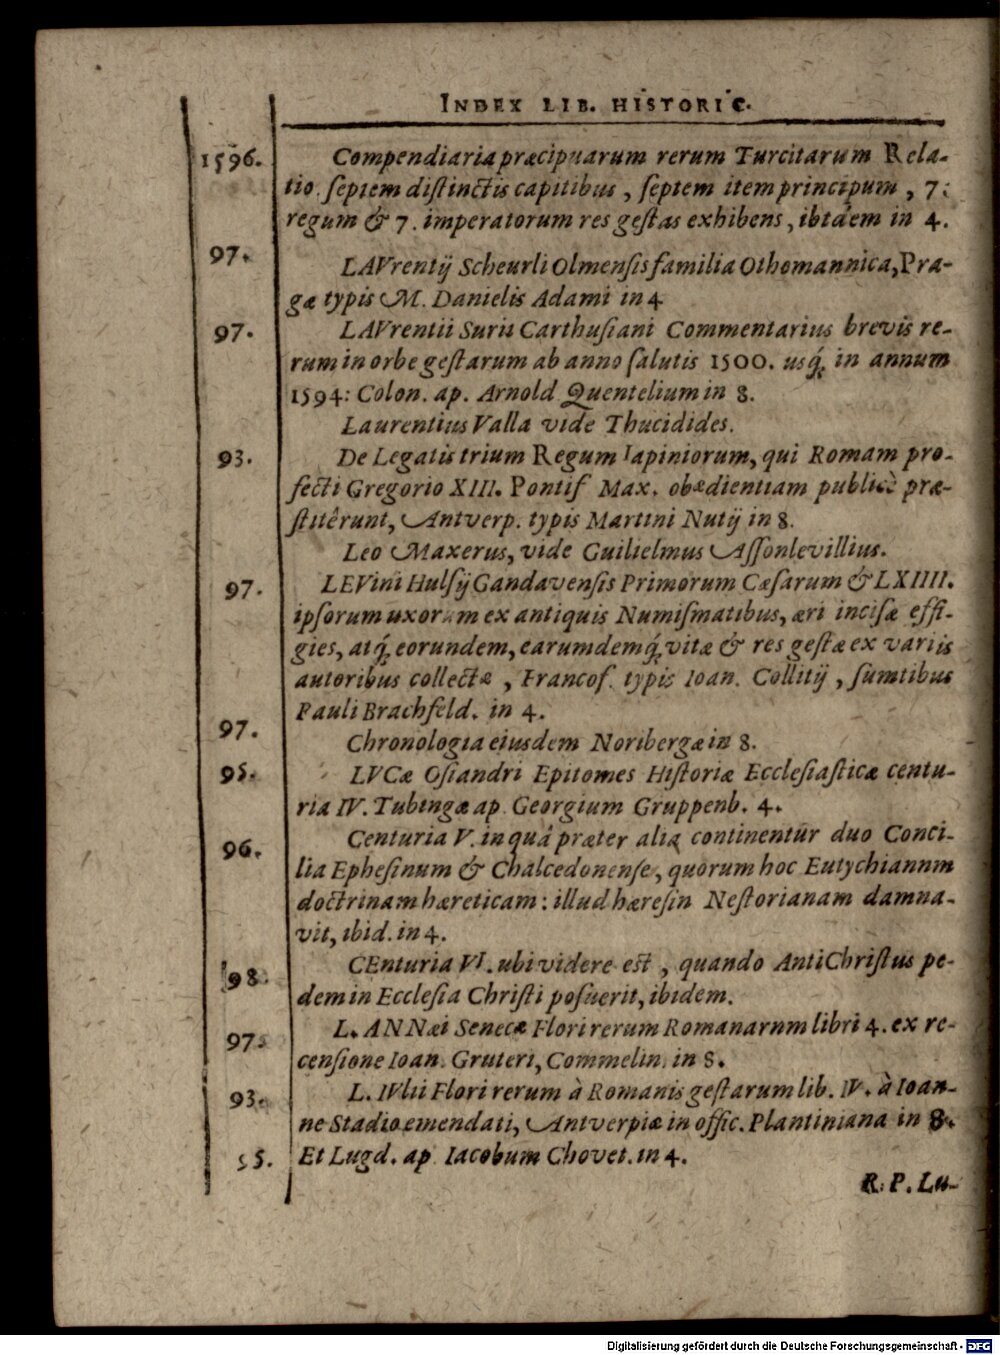 INDEX LIB. HISTORIC.
1596. Compendiaria præcipuarum rerum Turcitarum Rela-
tio septem distinctis capitibus, septem item principum, 7.
regum & 7. imperatorum res gestas exhibens, ibidem in 4.
97. LAVrentij Scheurli Olmensis familia Othomannica, Pra-
gæ typis M. Danielis Adami in 4
97. LAVrentii Surii Carthusiani Commentarius brevis re-
rum in orbe gestarum ab anno salutis 1500. usq́; in annum
1594: Colon. ap. Arnold Quentelium in 8.
Laurentius Valla vide Thucidides.
93. De Legatis trium Regum Iapiniorum, qui Romam pro-
fecti Gregorio XIII. Pontif Max. obædientiam publicè præ-
stitêrunt, Antverp. typis Martini Nutij in 8.
Leo Maxerus, vide Guilielmus Assonlevillius.
97. LEVini Hulsij Gandavensis Primorum Cæsarum & LXIIII.
ipsorum uxorum ex antiquis Numismatibus, æri incisæ effi-
gies, atq́; eorundem, earumdemq́; vitæ & res gestæ ex variis
autoribus collectæ, Francof. typis Ioan. Collitij, sumtibus
Pauli Brachfeld. in 4.
97. Chronologia eiusdem Noribergæ in 8.
95. LVCæ Osiandri Epitomes Historiæ Ecclesiasticæ centu-
ria IV. Tubingæ ap. Georgium Gruppenb. 4.
96. Centuria V. in quâ præter aliq; continentur duo Conci-
lia Ephesinum & Chalcedonense, quorum hoc Eutychiannm
doctrinam hæreticam: illud hæresin Nestorianam damna-
vit, ibid. in 4.
98. CEnturia VI. ubi videre est, quando AntiChristus pe-
dem in Ecclesia Christi posuerit, ibidem.
97. L. ANNæi Senecæ Flori rerum Romanarnm libri 4. ex re-
censione Ioan. Gruteri, Commelin. in 8.
93. L. IVlii Flori rerum à Romanis gestarum lib. IV. à Ioan-
ne Stadio emendati, Antverpiæ in offic. Plantiniana in 8.
Et Lugd. ap. Iacobum Chovet. in 4.
R. P. Lu-
Digitalisierung gefördert durch die Deutsche Forschungsgemeinschaft - DFG